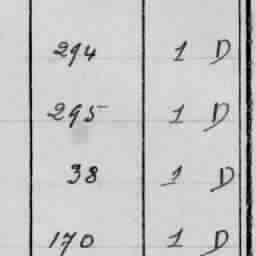 294 1 D
295 1 D
38 1 D
170 1 D